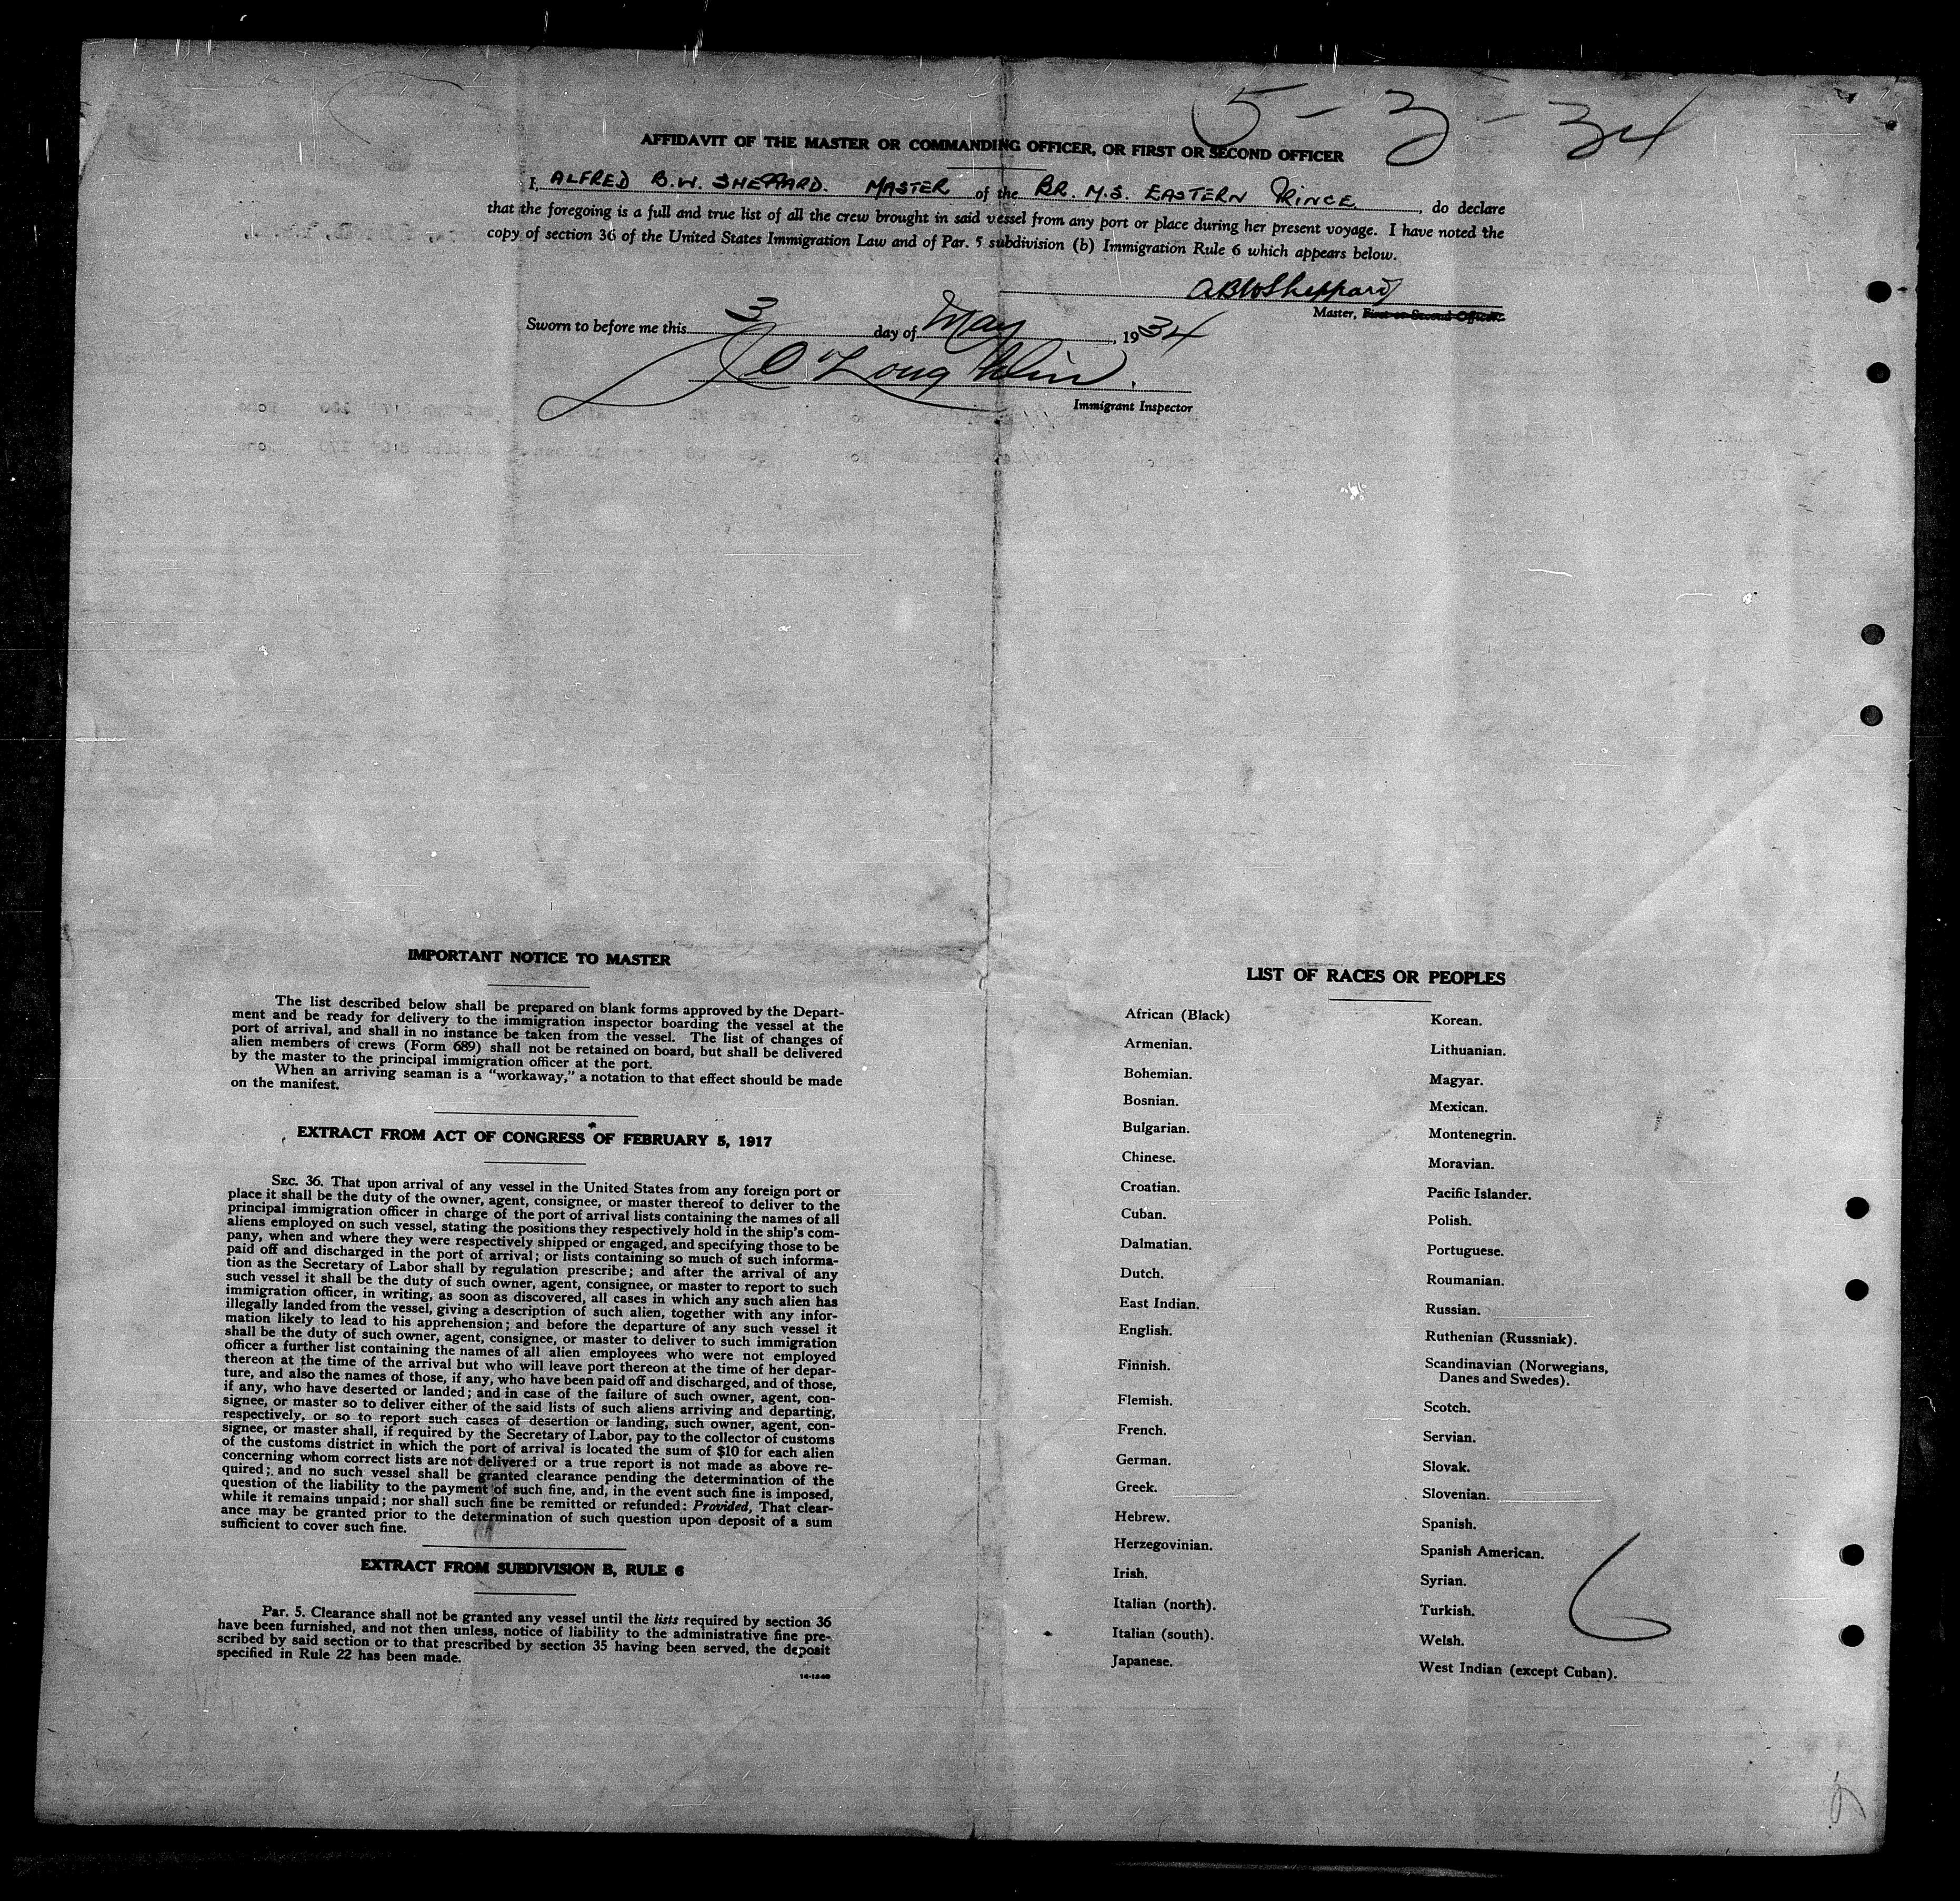 5-3-34
AFFIDAVIT OF THE MASTER OR COMMANDING OFFICER, OR FIRST OR SECOND OFFICER
I, ALFRED B.W. SHEPPARD. MASTER of the BR. M.S. EASTERN PRINCE, do declare
that the foregoing is a full and true list of all the crew brought in said vessel from any port or place during her present voyage. I have noted the
copy of section 36 of the United States Immigration Law and of Par. 5 subdivision (b) Immigration Rule 6 which appears below.
ABWSheppard
Master, First or Second Officer.
Sworn to before me this 3 day of May, 1934
O'Loughlin
Immigrant Inspector
IMPORTANT NOTICE TO MASTER
The list described below shall be prepared on blank forms approved by the Depart-
ment and be ready for delivery to the immigration inspector boarding the vessel at the
port of arrival, and shall in no instance be taken from the vessel. The list of changes of
alien members of crews (Form 689) shall not be retained on board, but shall be delivered
by the master to the principal immigration officer at the port.
When an arriving seaman is a "workaway," a notation to that effect should be made
on the manifest.
EXTRACT FROM ACT OF CONGRESS OF FEBRUARY 5, 1917
SEC. 36. That upon arrival of any vessel in the United States from any foreign port or
place it shall be the duty of the owner, agent, consignee, or master thereof to deliver to the
principal immigration officer in charge of the port of arrival lists containing the names of all
aliens employed on such vessel, stating the positions they respectively hold in the ship's com-
pany, when and where they were respectively shipped or engaged, and specifying those to be
paid off and discharged in the port of arrival; or lists containing so much of such informa-
tion as the Secretary of Labor shall by regulation prescribe; and after the arrival of any
such vessel it shall be the duty of such owner, agent, consignee, or master to report to such
immigration officer, in writing, as soon as discovered, all cases in which any such alien has
illegally landed from the vessel, giving a description of such alien, together with any infor-
mation likely to lead to his apprehension; and before the departure of any such vessel it
shall be the duty of such owner, agent, consignee, or master to deliver to such immigration
officer a further list containing the names of all alien employees who were not employed
thereon at the time of the arrival but who will leave port thereon at the time of her depar-
ture, and also the names of those, if any, who have been paid off and discharged, and of those,
if any, who have deserted or landed; and in case of the failure of such owner, agent, con-
signee, or master so to deliver either of the said lists of such aliens arriving and departing,
respectively, or so to report such cases of desertion or landing, such owner, agent, con-
signee, or master shall, if required by the Secretary of Labor, pay to the collector of customs
of the customs district in which the port of arrival is located the sum of $10 for each alien
concerning whom correct lists are not delivered or a true report is not made as above re-
quired; and no such vessel shall be granted clearance pending the determination of the
question of the liability to the payment of such fine, and, in the event such fine is imposed,
while it remains unpaid; nor shall such fine be remitted or refunded: Provided, That clear-
ance may be granted prior to the determination of such question upon deposit of a sum
sufficient to cover such fine.
EXTRACT FROM SUBDIVISION B, RULE 6
Par. 5. Clearance shall not be granted any vessel until the lists required by section 36
have been furnished, and not then unless, notice of liability to the administrative fine pre-
scribed by said section or to that prescribed by section 35 having been served, the deposit
specified in Rule 22 has been made.
LIST OF RACES OR PEOPLES
African (Black)
Armenian.
Bohemian.
Bosnian.
Bulgarian.
Chinese.
Croatian.
Cuban.
Dalmatian.
Dutch.
East Indian.
English.
Finnish.
Flemish.
French.
German.
Greek.
Hebrew.
Herzegovinian.
Irish.
Italian (north).
Italian (south).
Japanese.
Korean.
Lithuanian.
Magyar.
Mexican.
Montenegrin.
Moravian.
Pacific Islander.
Polish.
Portuguese.
Roumanian.
Russian.
Ruthenian (Russniak).
Scandinavian (Norwegians,
Danes and Swedes).
Scotch.
Servian.
Slovak.
Slovenian.
Spanish.
Spanish American.
Syrian.
Turkish.
Welsh.
West Indian (except Cuban).
6